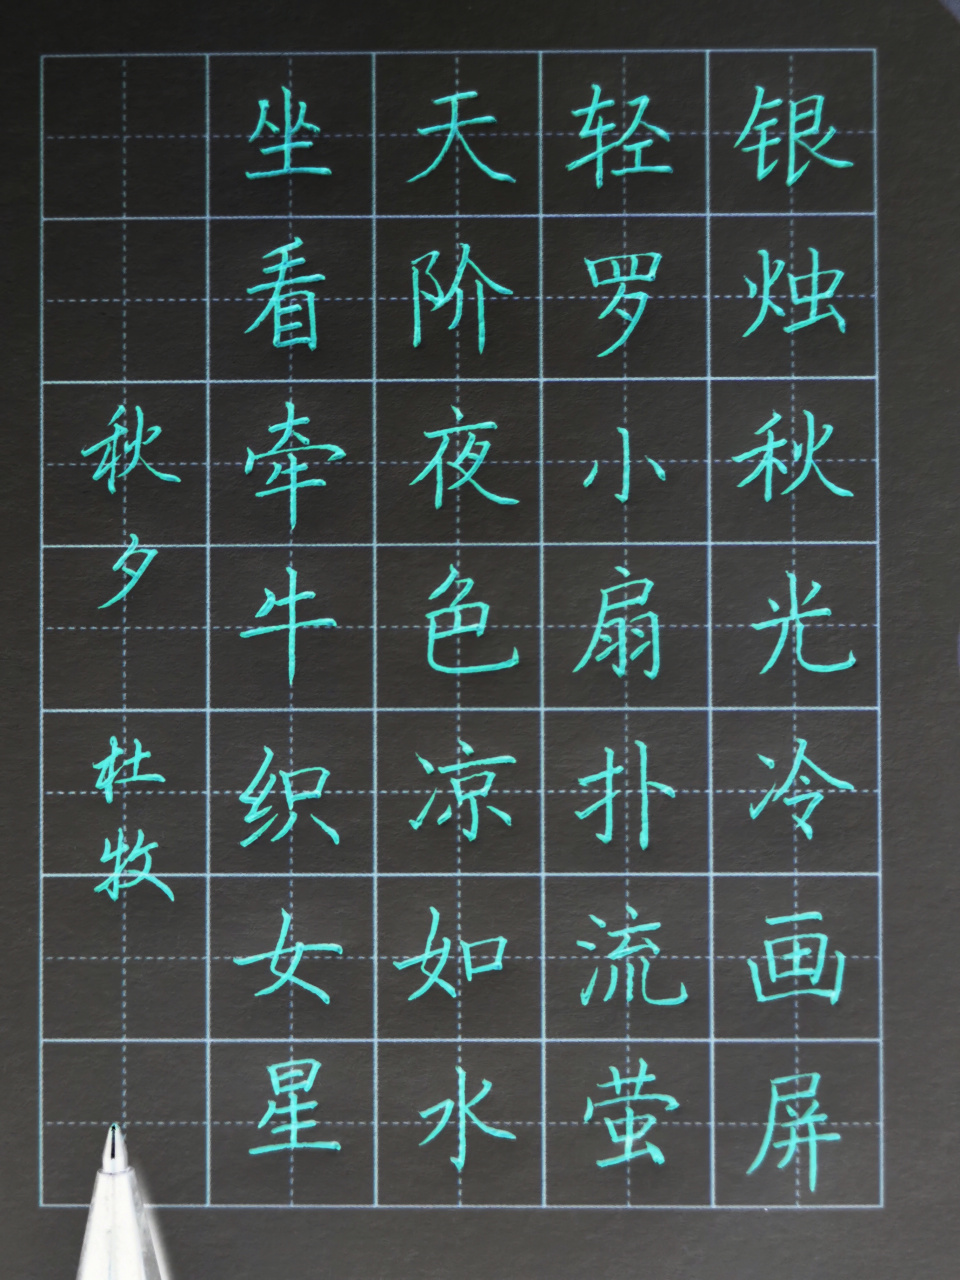 银烛秋光冷画屏
轻罗小扇扑流萤
天阶夜色凉如水
坐看牵牛织女星
秋夕
杜牧